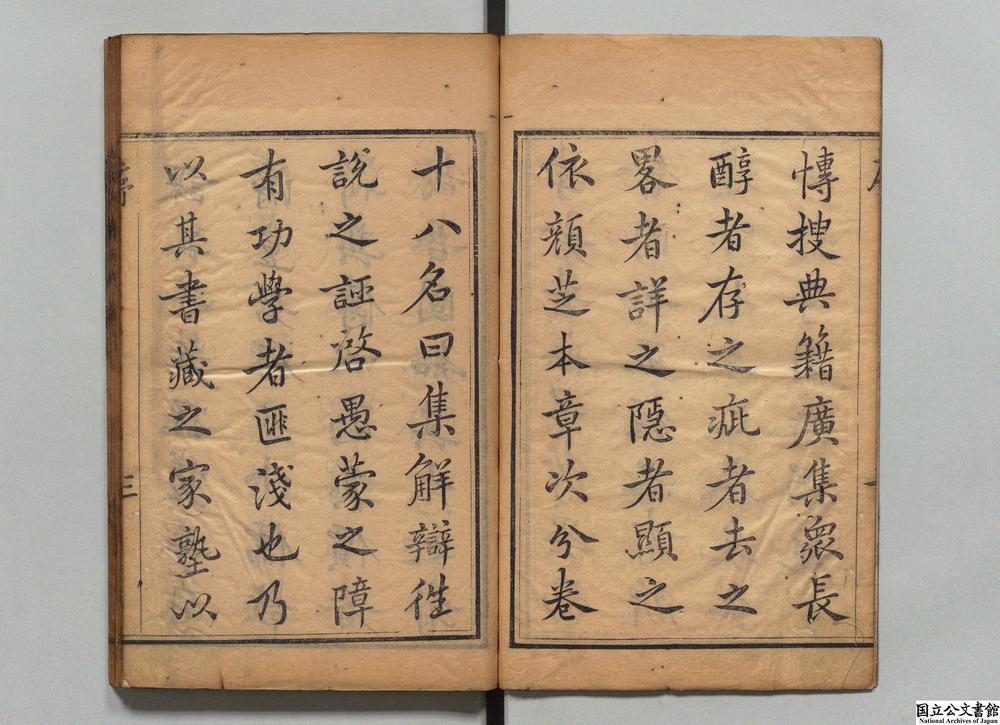 愽搜典籍廣集衆長
醇者存之疵者去之
畧者詳之隱者顯之
依顔芝本章次分卷
十八名曰集解辯徃
說之誣啓愚蒙之障
有功學者匪淺也乃
以其書藏之家塾以
序
三
国立公文書館
National Archives of Japan